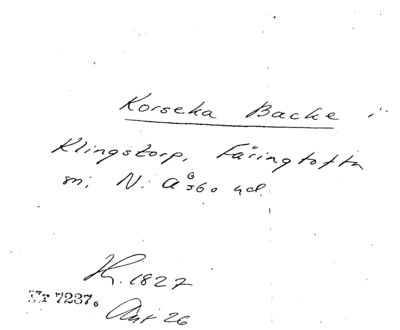 Korseka Backe i
Klingstorp, Färingtofta
sn, N. Åsbo hd.
H. 1827
Nr 7237.
Ant 26